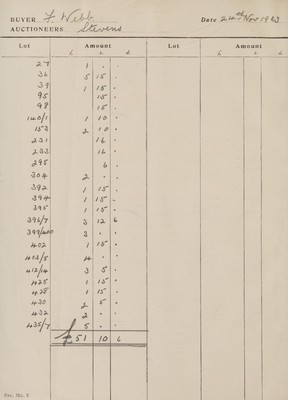 BUYER F. Webb Date 24th Nov 1923
AUCTIONEERS Stevens
Lot Amount Lot Amount
£ s d £ s d
27 1 . .
36 5 15 .
39 1 15 .
95 15 .
98 15 .
140/1 1 10 .
153 2 10 .
231 16 .
233 16 .
295 6 .
304 2 . .
392 1 15 .
394 1 15 .
395 1 15 .
396/7 3 12 6
399/400 3 . .
402 1 15 .
403/5 4 . .
412/14 3 5 .
425 1 15 .
428 1 15 .
430 2 5 .
432 2 . .
435/7 5 . .
£ 51 10 6